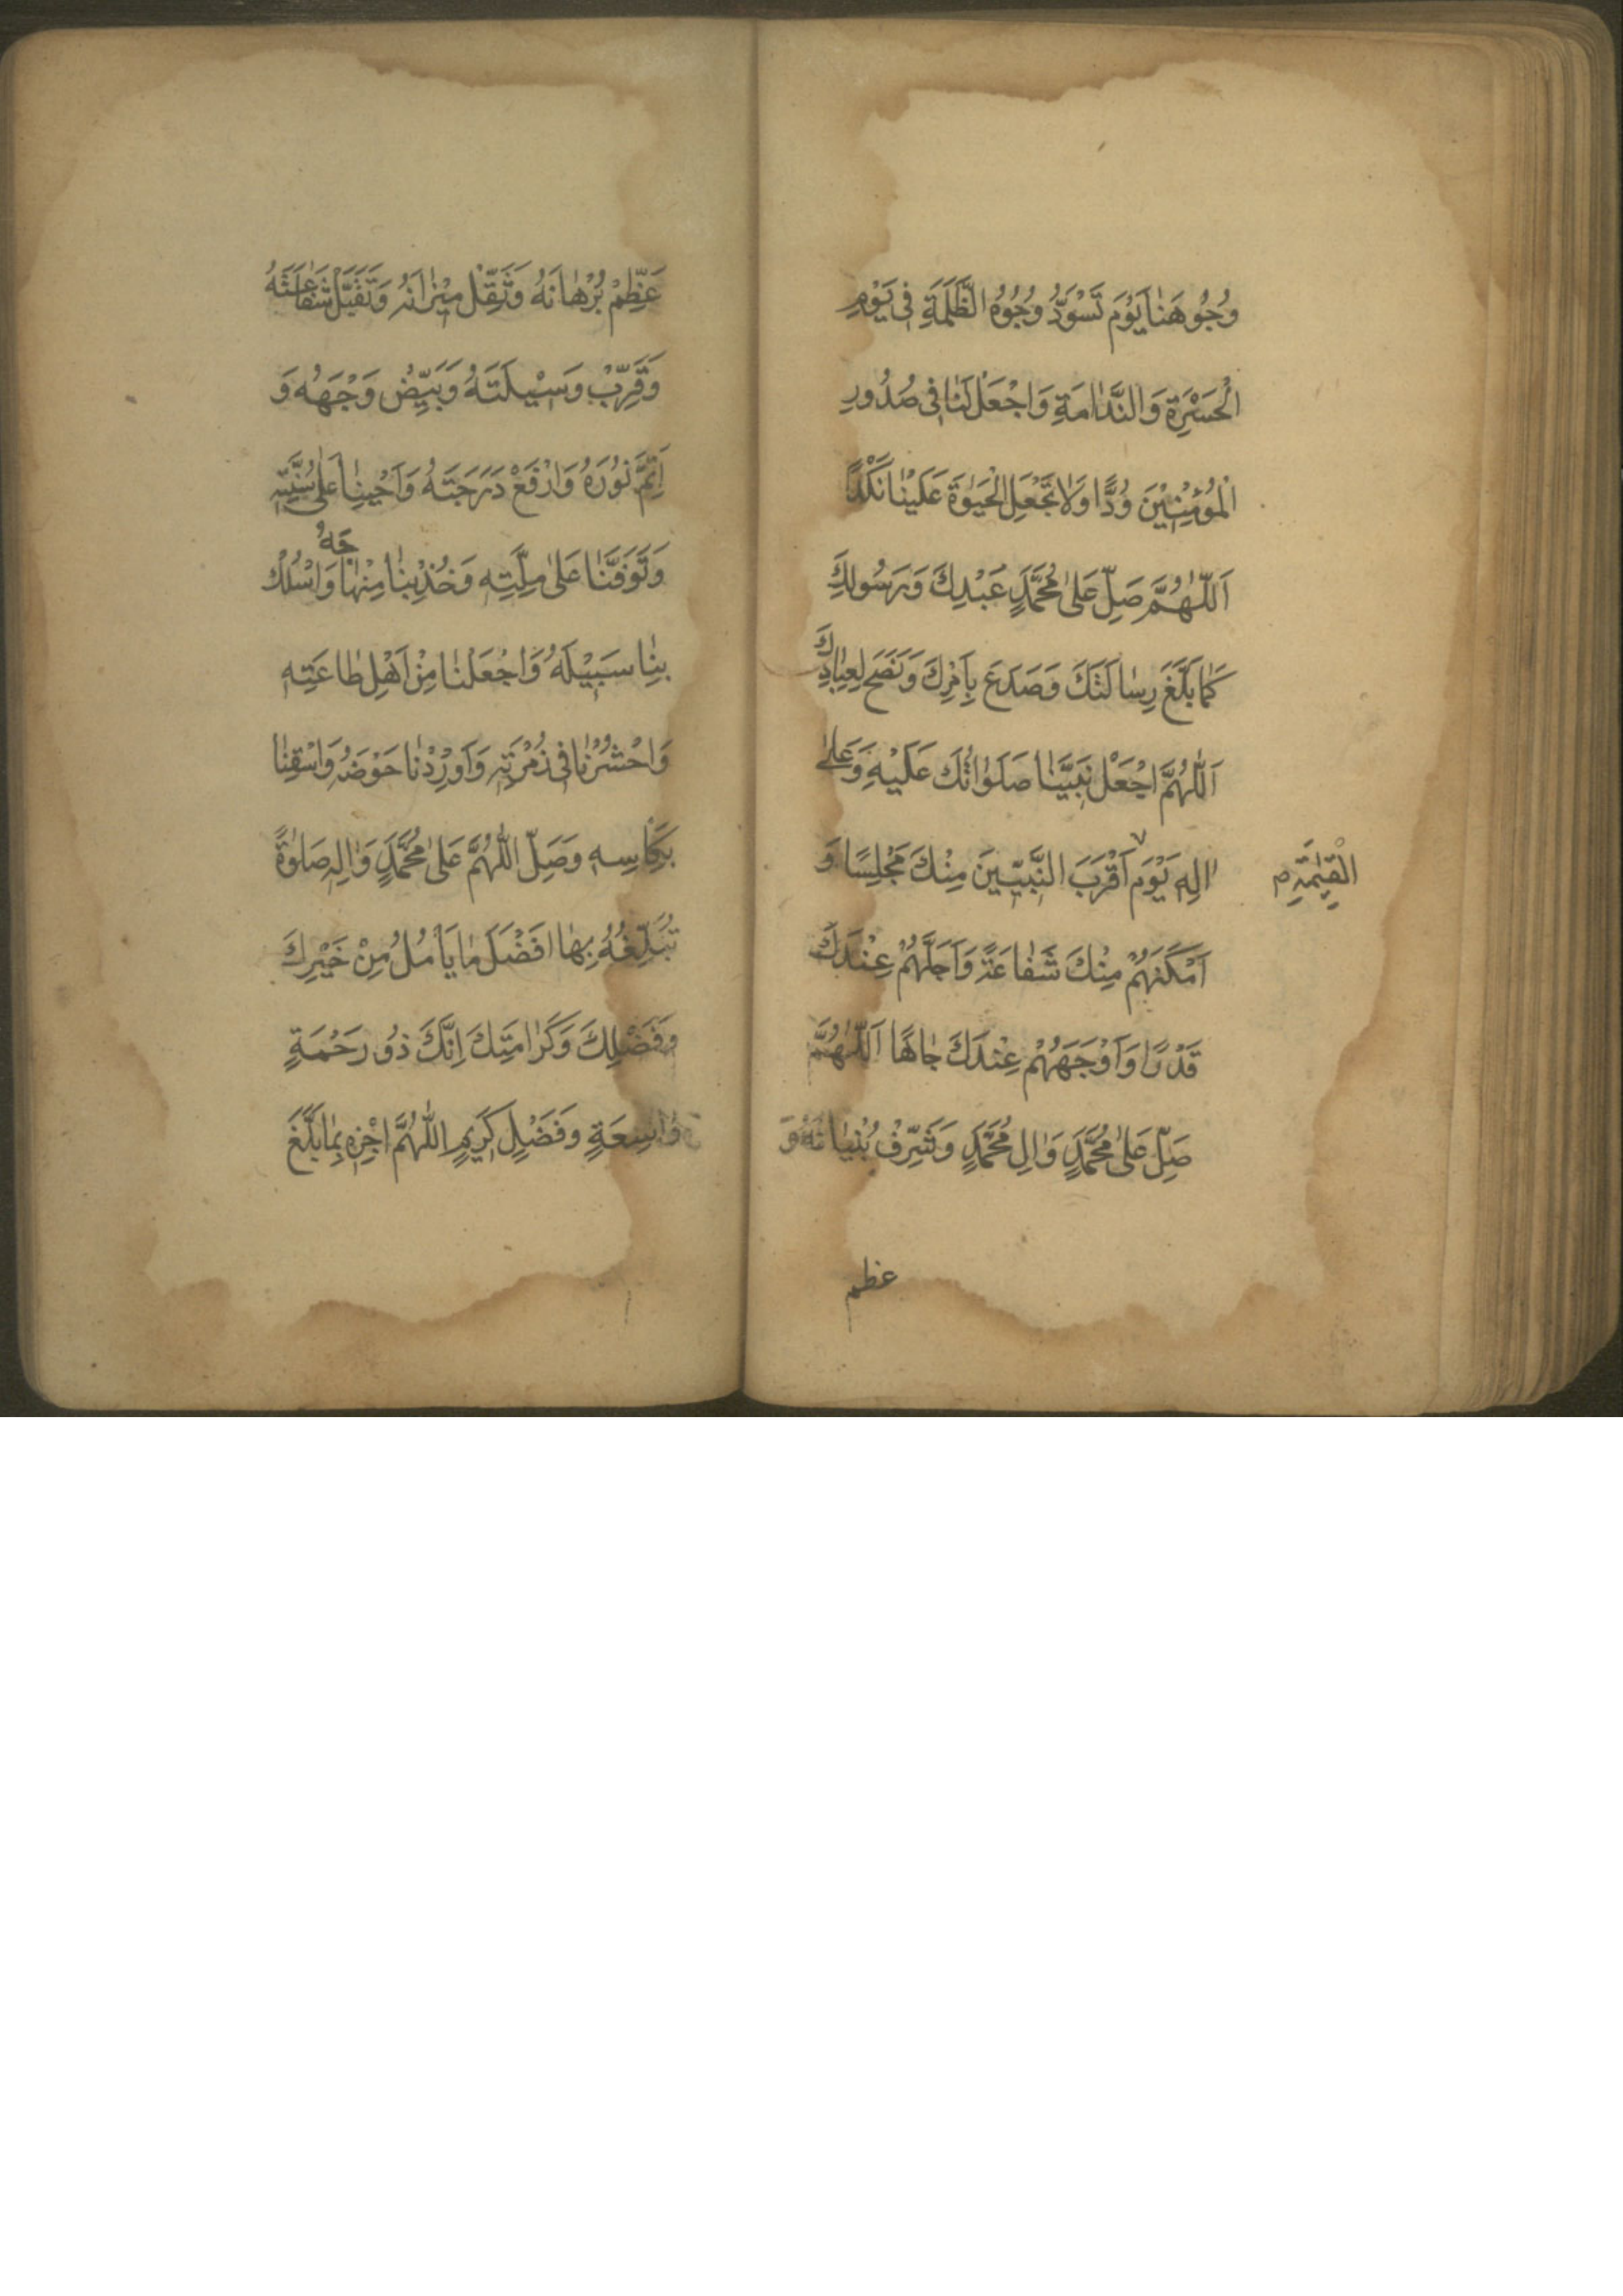 وُجُوهَنٰا يَوْمَ تَسْوَدُّ وُجُوهُ الظَّلَمَةِ فِى يَوْمِ
الْحَسْرَةِ وَالنَّدٰامَةِ وَاجْعَلْ لَنٰا فِى صُدُورِ
الْمُؤْمِنِيْنَ وُدًّا وَلٰا تَجْعَلِ الْحَيٰوةَ عَلَيْنٰا نَكَدًا
اَللّٰهُمَّ صَلِّ عَلىٰ مُحَمَّدٍ عَبْدِكَ وَرَسُولِكَ
كَمٰا بَلَّغَ رِسٰالَتَكَ وَصَدَعَ بِاَمْرِكَ وَنَصَحَ لِعِبٰادِكَ
اَللّٰهُمَّ اجْعَلْ نَبِيَّنٰا صَلَوٰاتُكَ عَلَيْهِ وَعَلىٰ
اٰلِهِ يَوْمَ اَقْرَبَ النَّبِيّٖيْنَ مِنْكَ مَجْلِسًا وَ
الْقِيٰمَةِ
اَمْكَنَهُمْ مِنْكَ شَفٰاعَةً وَاَجَلَّهُمْ عِنْدَكَ
قَدْرًا وَاَوْجَهَهُمْ عِنْدَكَ جٰاهًا اَللّٰهُمَّ
صَلِّ عَلىٰ مُحَمَّدٍ وَاٰلِ مُحَمَّدٍ وَشَرِّفْ بُنْيٰانَهُ وَ
عظم
عَظِّمْ بُرْهٰانَهُ وَثَقِّلْ مِيْزٰانَهُ وَتَقَبَّلْ شَفٰاعَتَهُ
وَقَرِّبْ وَسِيْلَتَهُ وَبَيِّضْ وَجْهَهُ وَ
اَتِمَّ نُوْرَهُ وَارْفَعْ دَرَجَتَهُ وَاَحْيِنٰا عَلىٰ سُنَّتِهِ
وَتَوَفَّنٰا عَلىٰ مِلَّتِهِ وَخُذْ بِنٰا مِنْهٰاجَهُ وَاسْلُكْ
بِنٰا سَبِيْلَهُ وَاجْعَلْنٰا مِنْ اَهْلِ طٰاعَتِهِ
وَاحْشُرْنٰا فِى زُمْرَتِهِ وَاَوْرِدْنٰا حَوْضَهُ وَاسْقِنٰا
بِكَاْسِهِ وَصَلِّ اللّٰهُمَّ عَلىٰ مُحَمَّدٍ وَاٰلِهِ صَلٰوةً
تُبَلِّغُهُ بِهٰا اَفْضَلَ مٰا يَاْمُلُ مِنْ خَيْرِكَ
وَفَضْلِكَ وَكَرٰامَتِكَ اِنَّكَ ذُو رَحْمَةٍ
وٰاسِعَةٍ وَفَضْلٍ كَرِيمٍ اللّٰهُمَّ اجْزِهِ بِمٰا بَلَّغَ